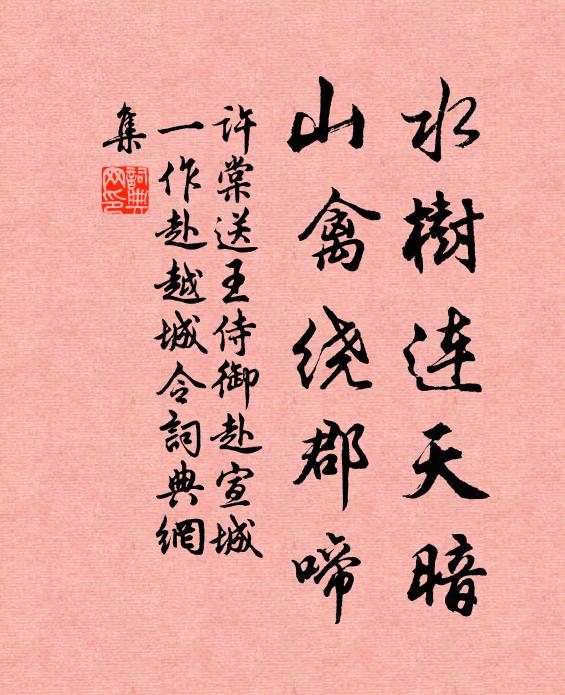 水樹连天暗
山禽绕郡啼
许棠送王侍御赴宣城
一作赴越城令詞典網
集
詞典
网印